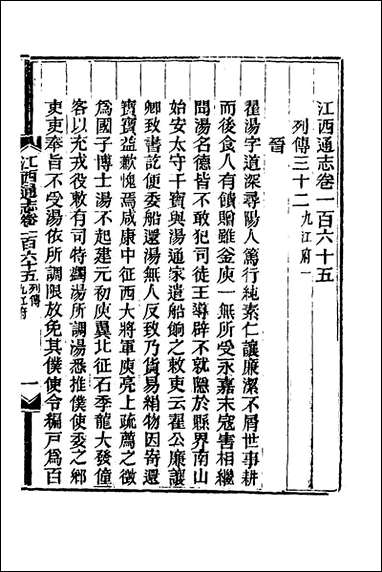 江西通志卷一百六十五
列傳三十二 九江府一
晉
翟湯字道深尋陽人篤行純素仁讓廉潔不屑世事耕
而後食人有餽贈雖釜庾一無所受永嘉末寇害相繼
聞湯名德皆不敢犯司徒王導辟不就隱於縣界南山
始安太守干寶與湯通家遣船餉之敕吏云翟公廉讓
卿致書訖便委船還湯無人反致乃貨易絹物因寄還
寶寶益歉愧焉咸康中征西大將軍庾亮上疏薦之徵
爲國子博士湯不起建元初庾翼北征石季龍大發僮
客以充戎役敕有司特蠲湯所調湯悉推僕使委之鄉
吏吏奉旨不受湯依所調限放免其僕使令編戸爲百
江西通志卷一百六十五 列傳 九江府 一